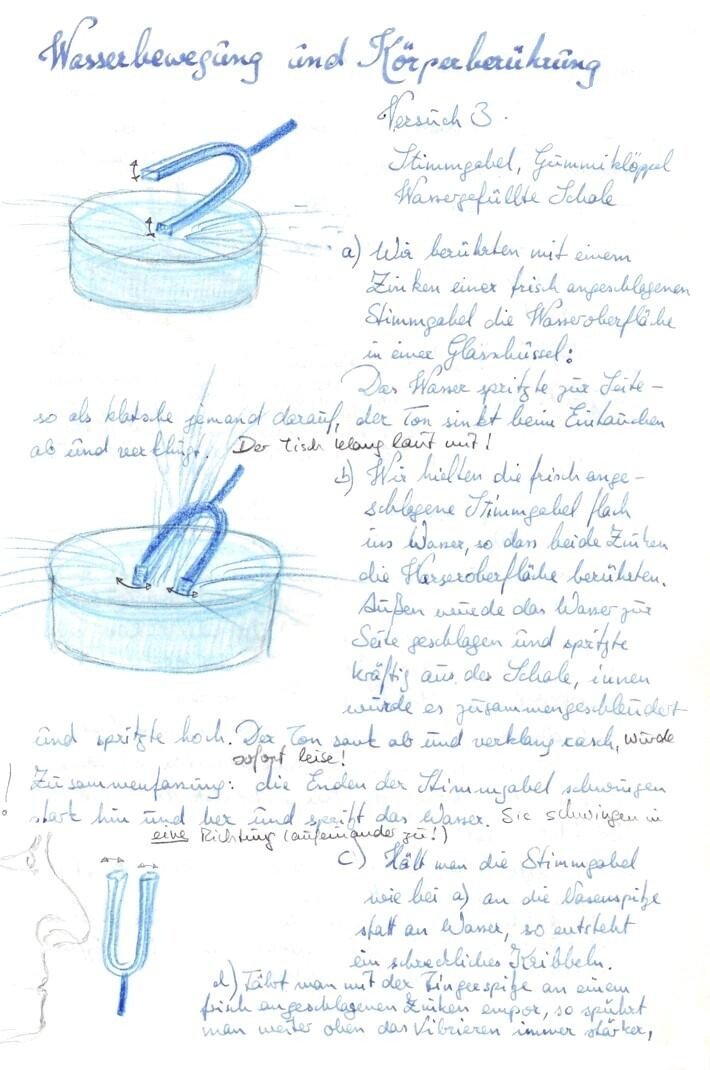 Wasserbewegung und Körperberührung
Versuch 3.
Stimmgabel, Gummiklöppel
Wassergefüllte Schale
a) Wir berührten mit einem
Zinken einer frisch angeschlagenen
Stimmgabel die Wasseroberfläche
in einer Glasschüssel:
Das Wasser spritzte zur Seite –
so als klatsche jemand darauf, der Ton sinkt beim Eintauchen
ab und verklingt. Der Tisch klang laut mit!
b) Wir hielten die frisch ange-
schlagene Stimmgabel flach
ins Wasser, so dass beide Zinken
die Wasseroberfläche berührten.
Außen wurde das Wasser zur
Seite geschlagen und spritzte
kräftig aus der Schale, innen
wurde es zusammengeschleudert
und spritzte hoch. Der Ton sank ab und verklang rasch, wurde
sofort leise!
Zusammenfassung: die Enden der Stimmgabel schwingen
stark hin und her und das Wasser. Sie schwingen in
! eine Richtung (aufeinander zu!)
c) Hält man die Stimmgabel
wie bei a) an die Nasenspitze
statt an Wasser, so entsteht
ein schreckliches Kribbeln.
d) Fährt man mit der Fingerspitze an einem
frisch angeschlagenen Zinken empor, so spührt
man weiter oben das Vibrieren immer stärker,